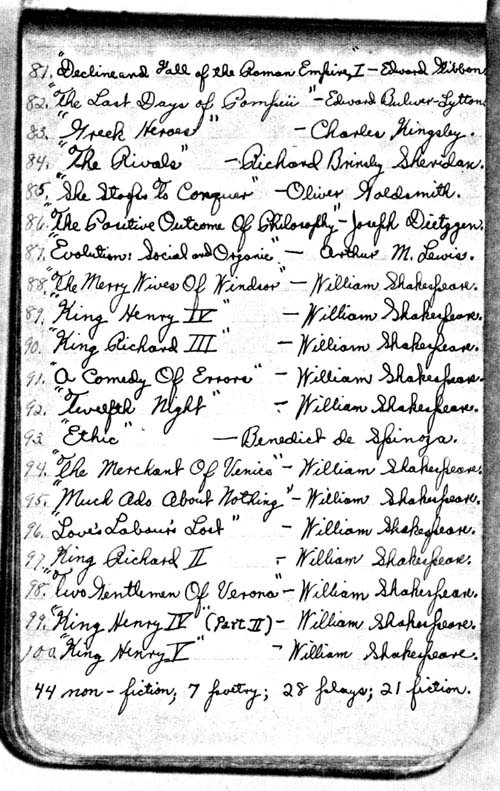 81. "Decline and Fall of the Roman Empire," I - Edward Gibbon
82. "The Last Days of Pompeii" - Edward Bulwer-Lytton
83. "Greek Heroes" - Charles Kingsley.
84. "The Rivals" - Richard Brinsly Sheridan.
85. "She Stoops To Conquer" - Oliver Goldsmith.
86. "The Positive Outcome Of Philosophy" - Joseph Dietzgen.
87. "Evolution: Social and Organic" - Arthur M. Lewis.
88. "The Merry Wives Of Windsor" - William Shakespeare.
89. "King Henry IV" - William Shakespeare.
90. "King Richard III" - William Shakespeare.
91. "A Comedy Of Errors" - William Shakespeare.
92. "Twelfth Night" - William Shakespeare.
93. "Ethic" - Benedict de Spinoza.
94. "The Merchant Of Venice" - William Shakespeare.
95. "Much Ado About Nothing" - William Shakespeare.
96. "Love's Labour's Lost" - William Shakespeare.
97. "King Richard II - William Shakespeare.
98. "Two Gentlemen Of Verona" - William Shakespeare.
99. "King Henry IV" (Part II) - William Shakespeare.
100. "King Henry V" - William Shakespeare.
44 non-fiction; 7 poetry; 28 plays; 21 fiction.